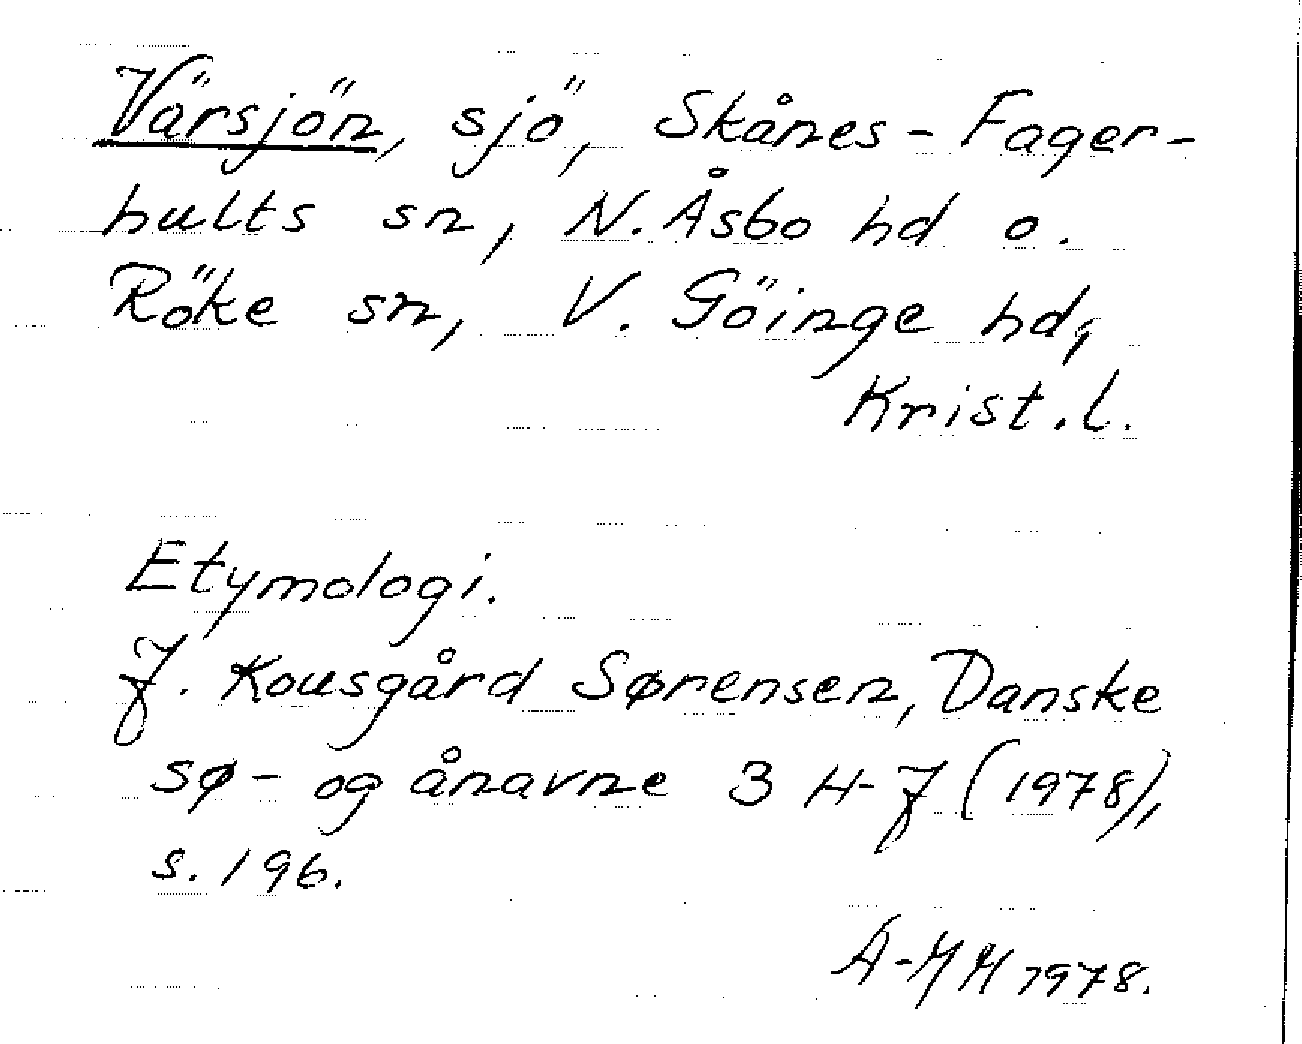 Värsjön, sjö, Skånes-Fager-
hults sn, N. Åsbo hd o.
Röke sn, V. Göinge hd,
Krist. l.
Etymologi.
J. Kousgård Sørensen, Danske
sø- og ånavne 3 H-J (1978),
s. 196.
A-MM 1978.